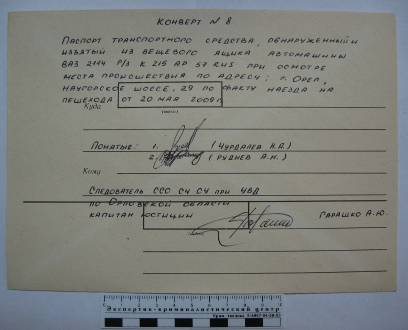 КОНВЕРТ N 8
ПАСПОРТ ТРАНСПОРТНОГО СРЕДСТВА, ОБНАРУЖЕННЫЙ И
ИЗЪЯТЫЙ ИЗ ВЕЩЕВОГО ЯЩИКА АВТОМАШИНЫ
ВАЗ 2114 Р/З К 215 АР 57 RUS ПРИ ОСМОТРЕ
МЕСТА ПРОИСШЕСТВИЯ ПО АДРЕСУ: г. ОРЕЛ,
НАУГОРСКОЕ ШОССЕ, 29 ПО ФАКТУ НАЕЗДА НА
ПЕШЕХОДА ОТ 20 МАЯ 2009 г.
Куда
ПОНЯТЫЕ: 1. (ЧУРДАЛЕВ Н.А.)
2. (РУДНЕВ А.Н.)
Кому
СЛЕДОВАТЕЛЬ ССО СЧ СУ ПРИ УВД
ПО ОРЛОВСКОЙ ОБЛАСТИ
КАПИТАН ЮСТИЦИИ ГАРАШКО А.Ю.
Экспертно-криминалистический центр